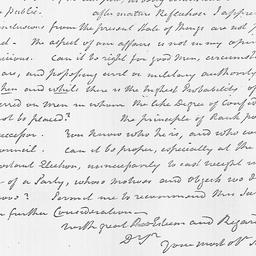 Public. after mature Reflection I appre
conclusions from the present State of things are not j
d. The aspect of our affairs is not in my opin
icious. Can it be right for good Men, circumst
are, and possessing civil or military authority
then and while there is the highest Probability of
red on men in whom the like Degree of Confid
not be placed? The principle of Rank
successor. You know who he is, and who co
ouncil. Can it be proper, especially at the
portant Election, unnecessarily to cast weight in
of a Party, whose motives and objects we do
prove? Permit me to recommend this Su
further Consideration
with great Esteem and Regard
Dr Sr
Your most ob S